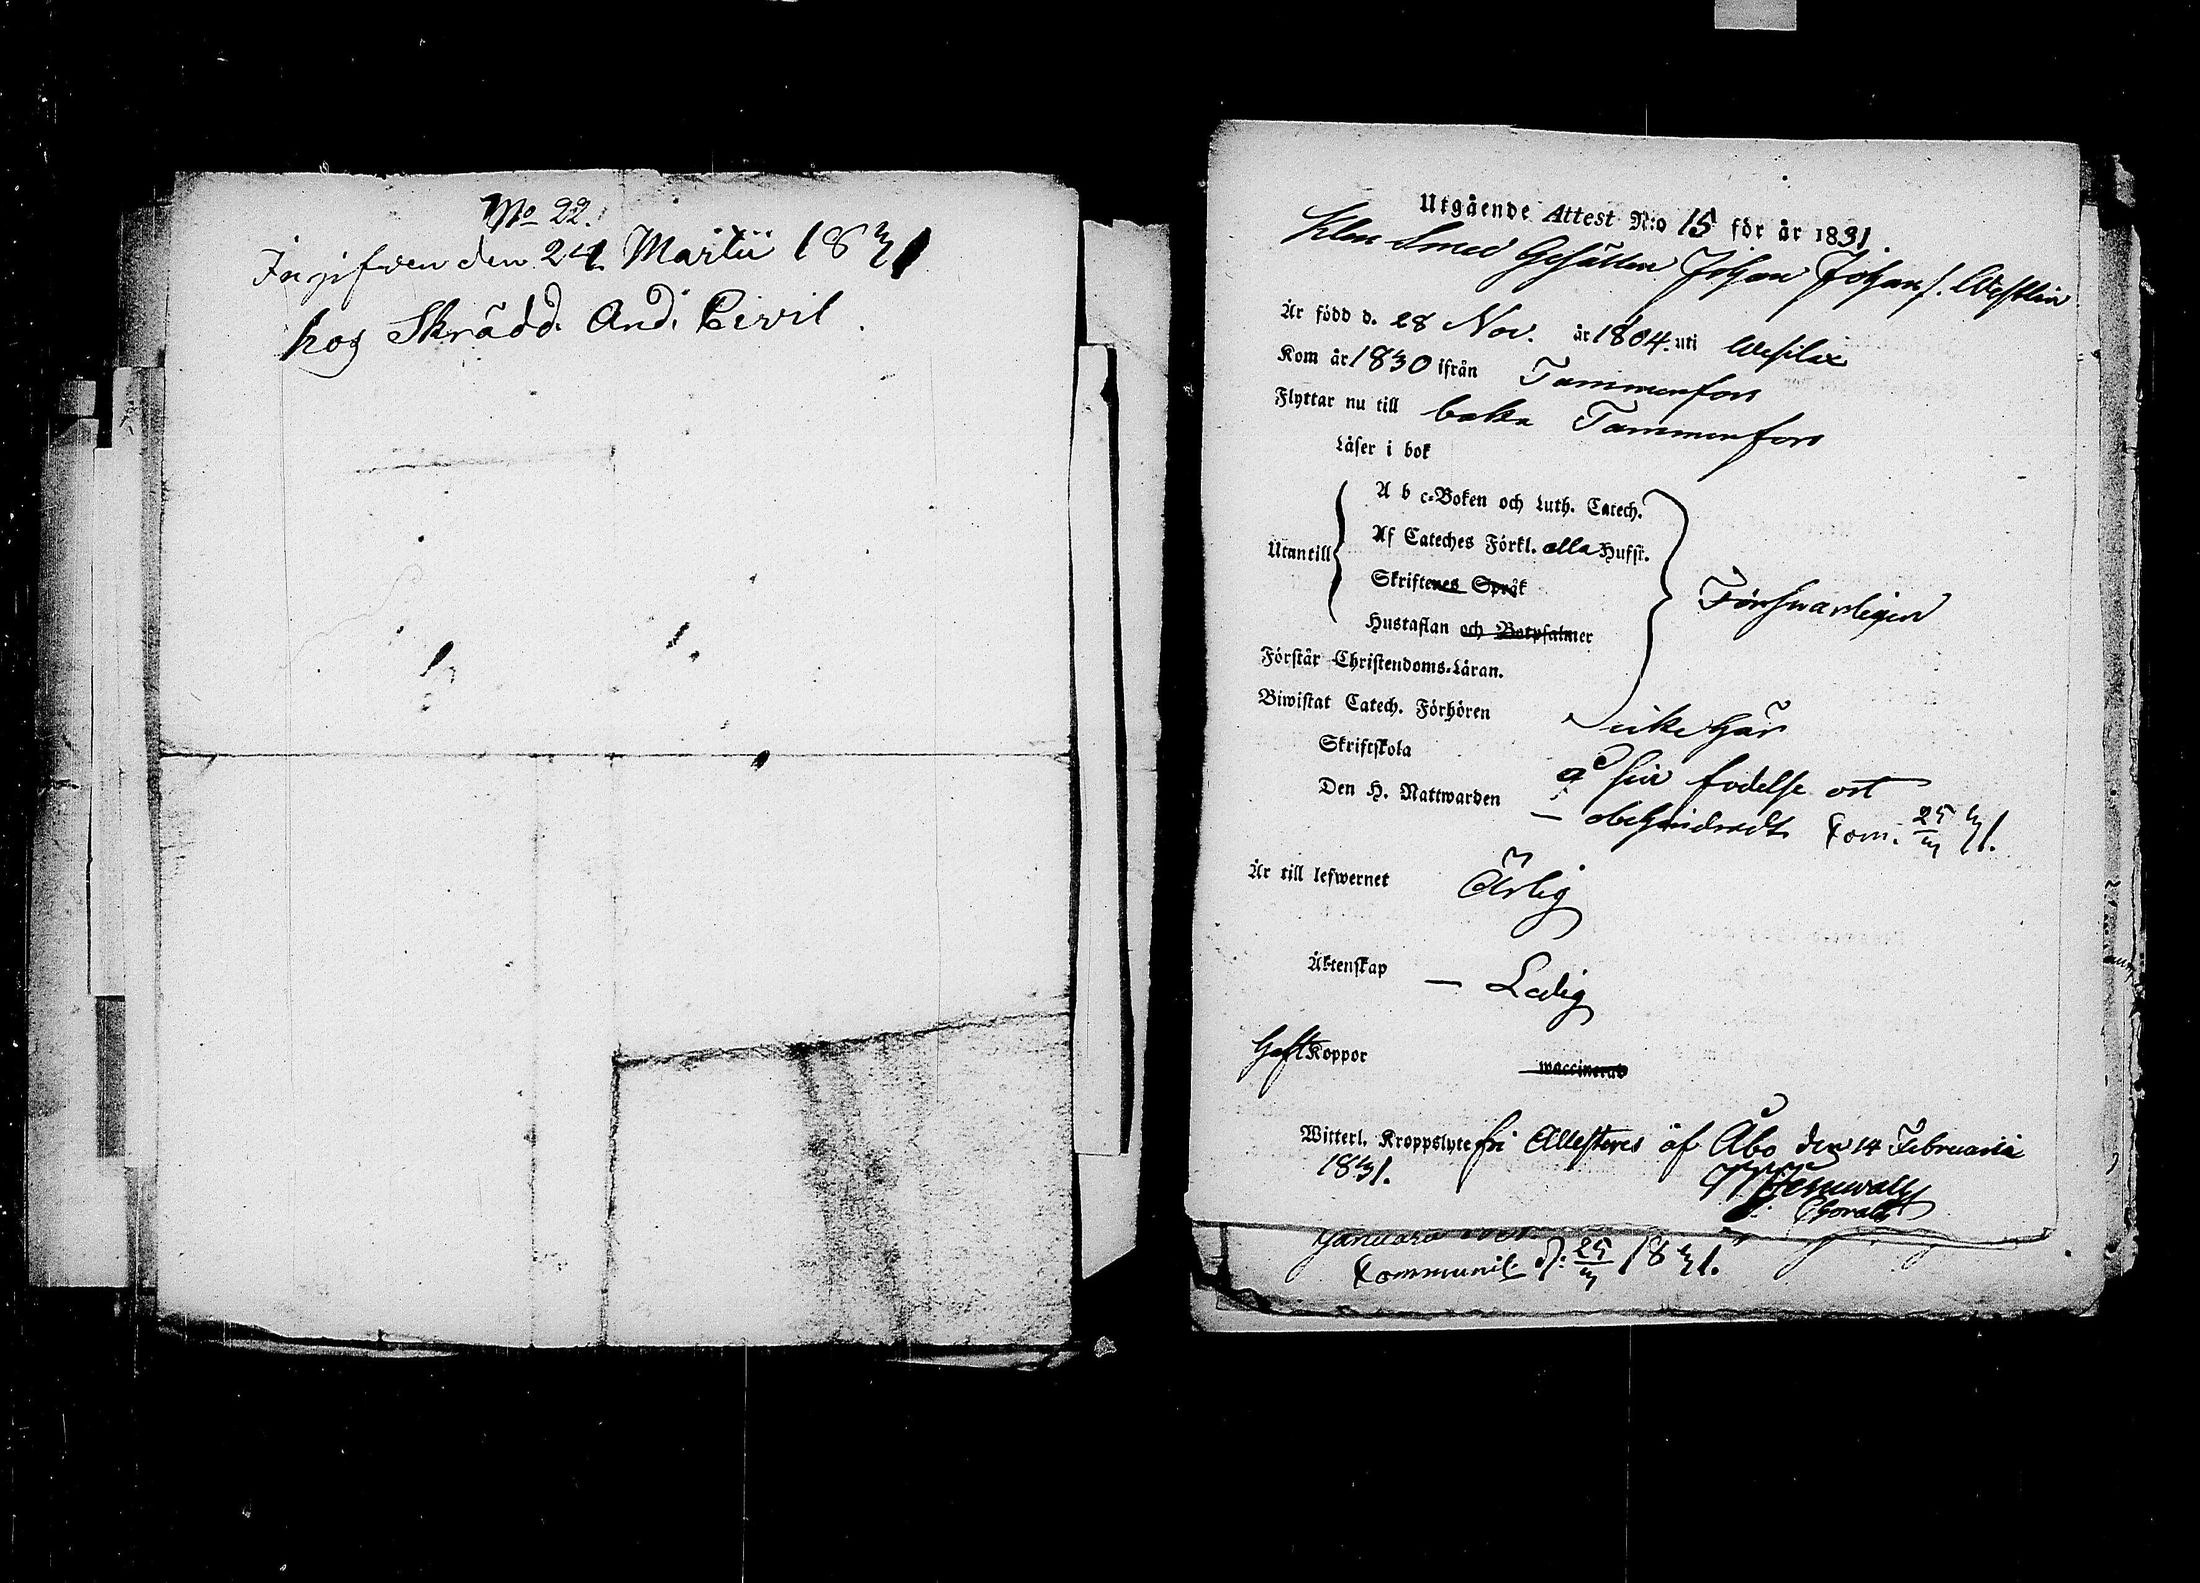 No 22.
Ingifven den 24 Martii 1831
hos Skrädd. And. Civil.
Utgående Attest N:o 15 för år 1831.
Klen Smed Gesällen Johan Johans f. Westlin
Är född d. 28 Nov. år 1804. uti Wesilax
Kom år 1830 ifrån Tammerfors
Flyttar nu till baka Tammerfors
Läser i bok
A b c-Boken och Luth. Catech.
Utantill Af Cateches Förkl. alla Hufst.
Skriftenes Språk
Hustaflan och Botpsalmer
Försvarligen
Förstår Christendoms-Läran.
Biwistat Catech. Förhören icke här
Skriftskola å sin födelse ort
Den H. Nattwarden — obehindradt Com. 25/3 31.
Är till lefwernet Ärlig
Äktenskap — Ledig
Haft Koppor waccinerad
Witterl. Kroppslyte fri Attesteres af Åbo den 14 Februarii
1831.
Januari
Communic. d. 25/3 1831.